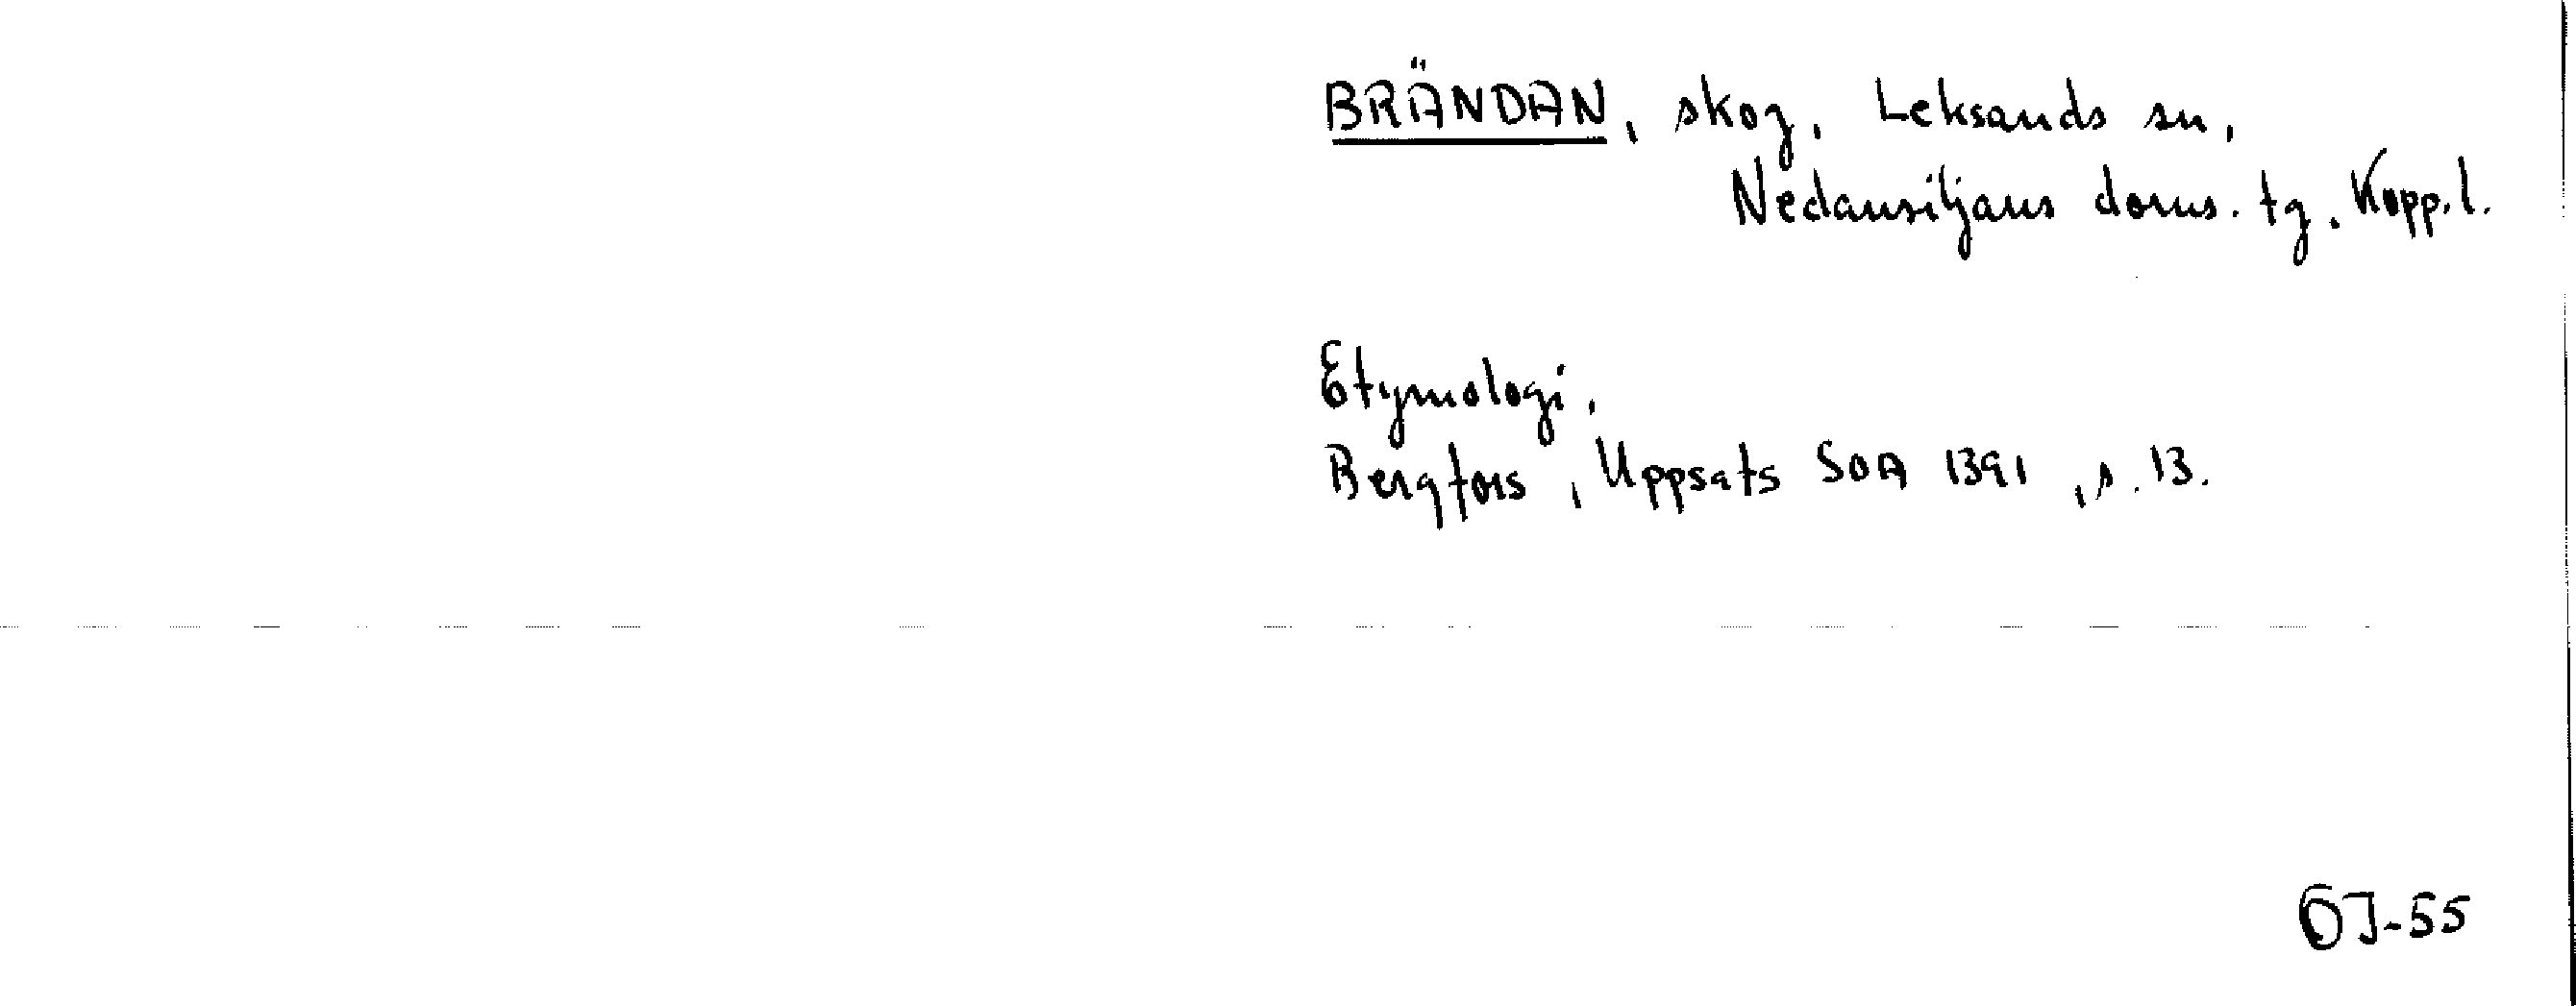 BRÄNDAN, skog, Leksands sn,
Nedansiljans doms. tg. Kopp. l.
Etymologi.
Bergfors, Uppsats SOA 1391, s. 13.
ÖJ-55